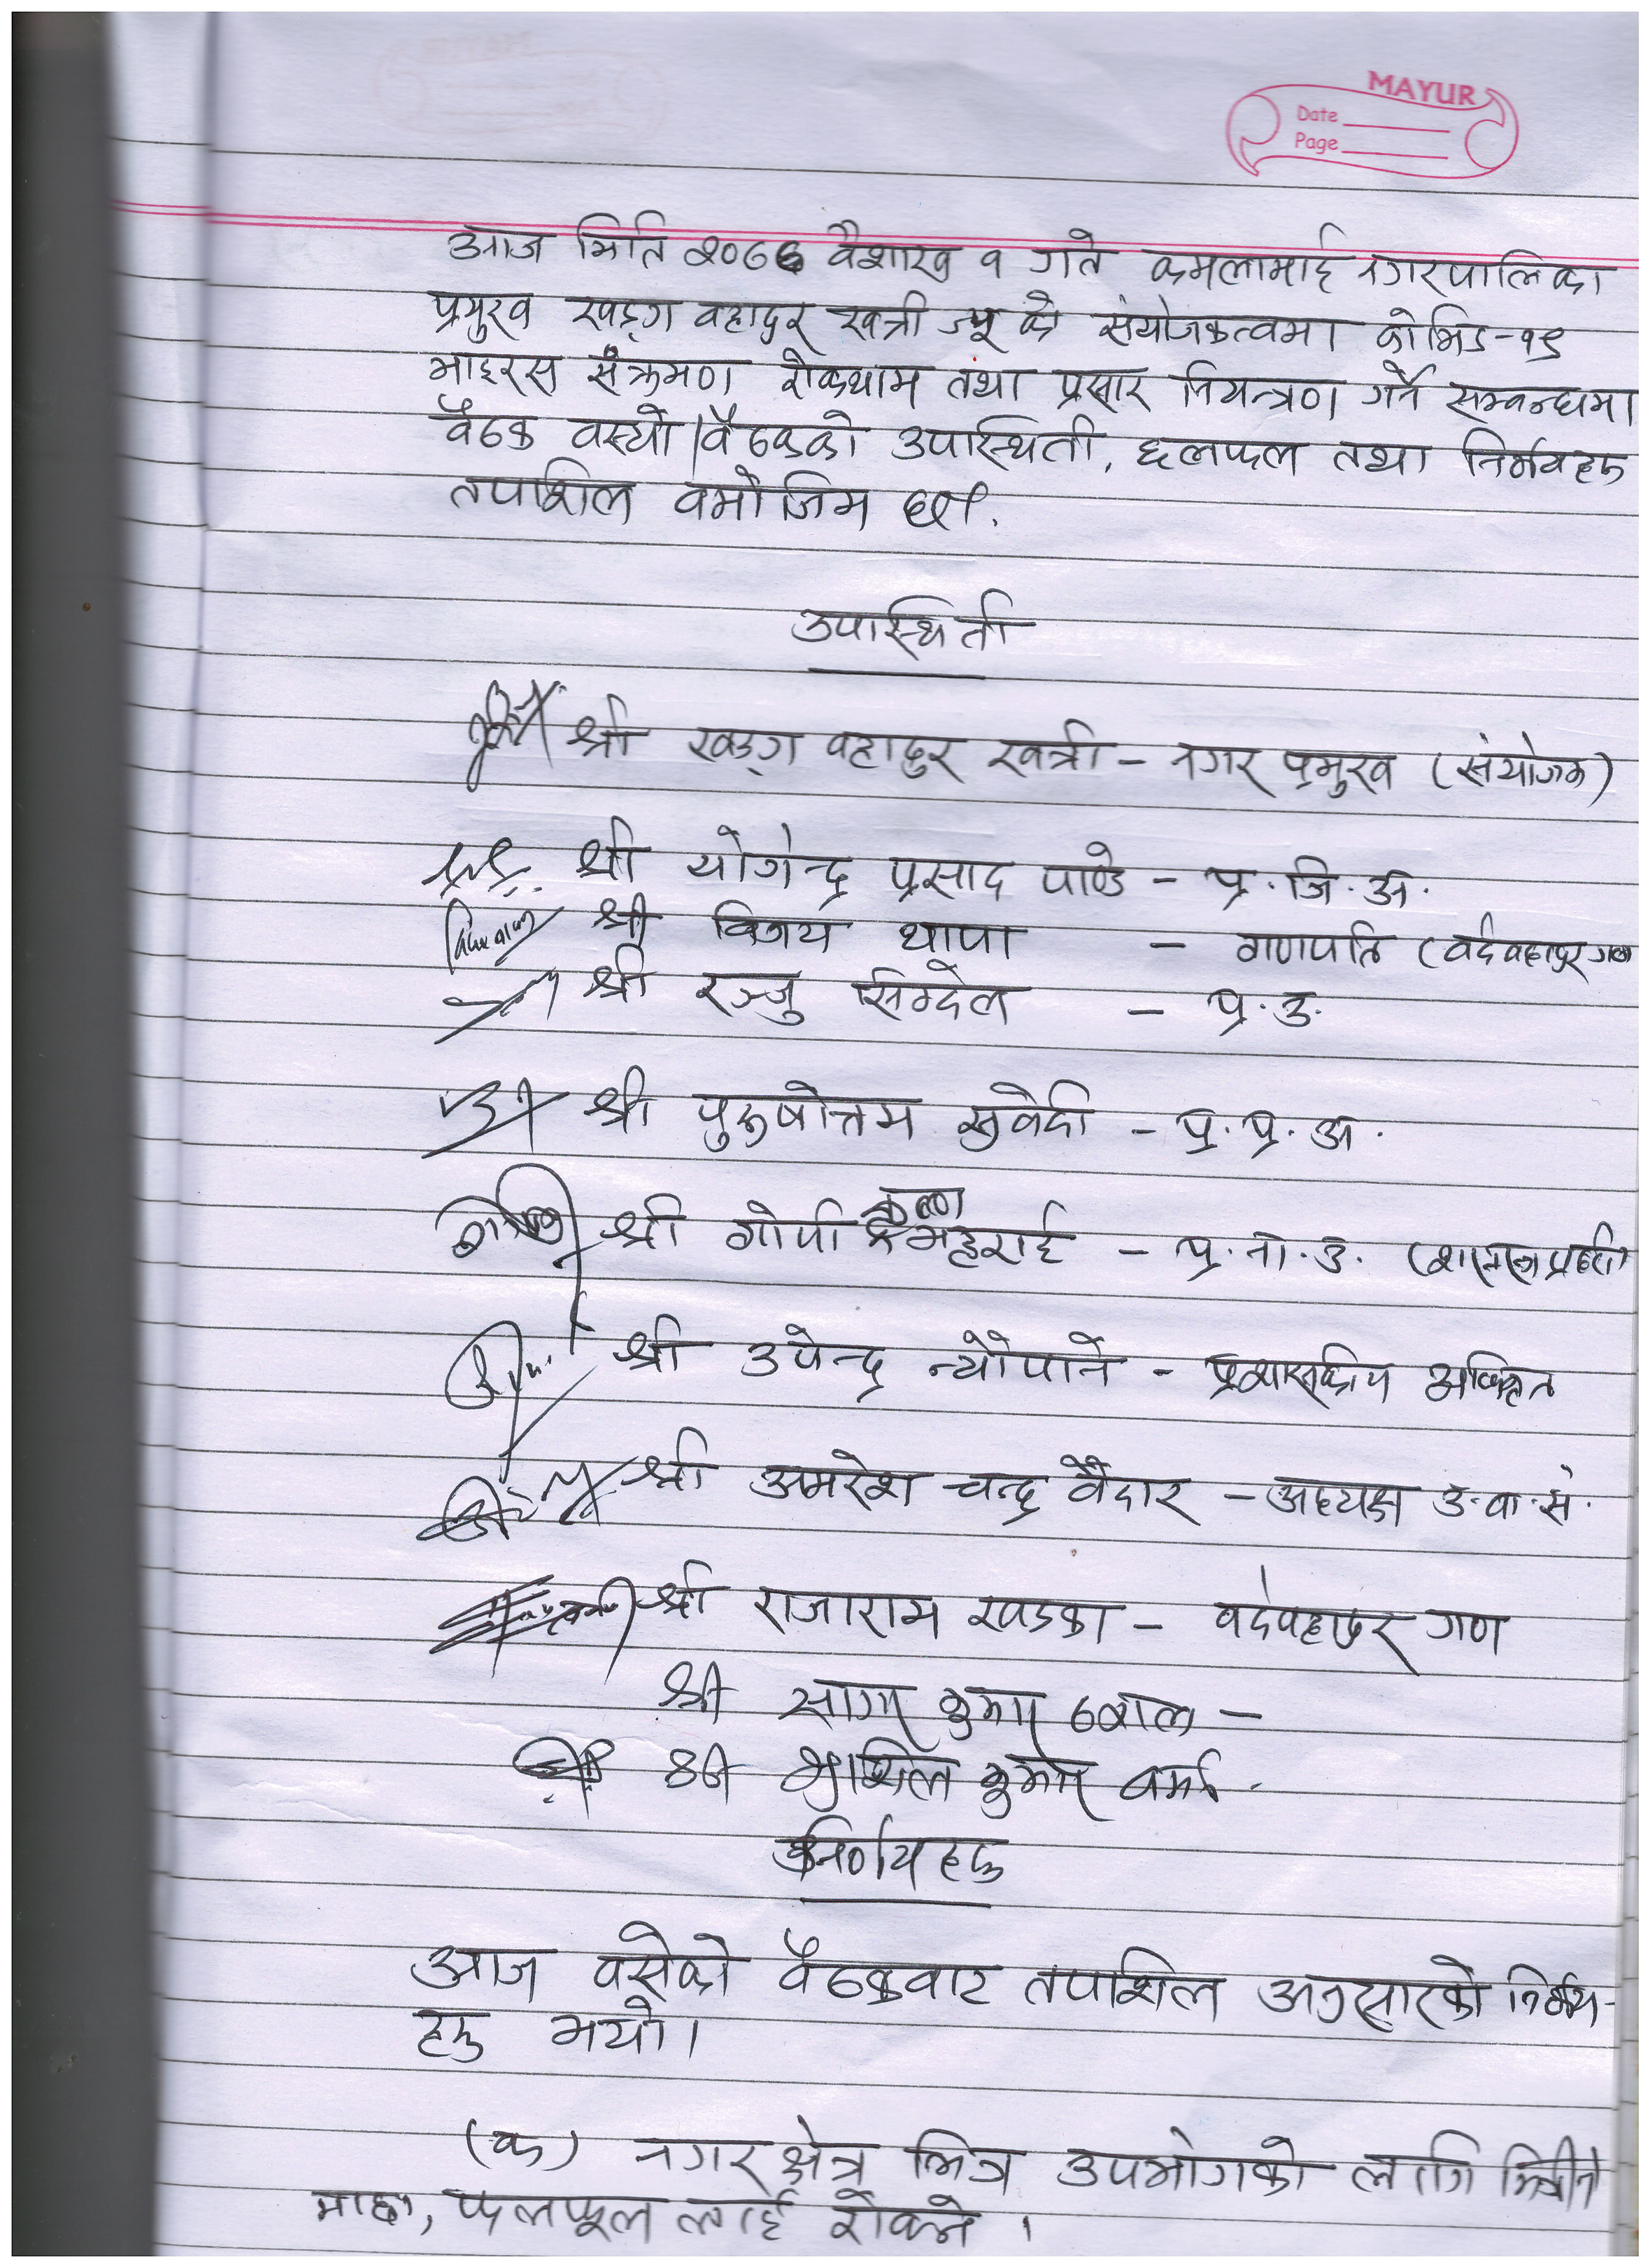 MAYUR
Date
Page
आज मिति २०७७ वैशाख १ गते कमलामाई नगरपालिका
प्रमुख खड्ग वहादुर खत्री ज्यू को संयोजकत्वमा कोभिड-१९
भाइरस संक्रमण रोकथाम तथा प्रसार नियन्त्रण गर्ने सम्वन्धमा
वैठक वस्यो। वैठकको उपस्थिती, छलफल तथा निर्णयहरु
तपशिल वमोजिम छन्.
उपस्थिती
श्री खड्ग वहादुर खत्री - नगर प्रमुख (संयोजक)
श्री योगेन्द्र प्रसाद पाण्डे - प्र. जि. अ.
श्री विजय थापा - गणपति (वर्दवहादुर गण
श्री रञ्जु सिग्देल - प्र. उ.
श्री पुरुषोत्तम सुवेदी - प्र. प्र. अ.
श्री गोपी कृष्ण भट्टराई - प्र. ना. उ. (शसस्त्र प्रहरी)
श्री उपेन्द्र न्यौपाने - प्रशासकीय अधिकृत
श्री अमरेश चन्द्र वैदार - अध्यक्ष उ. वा. सं.
श्री राजाराम खडका - वर्दवहादुर गण
श्री सागर कुमार ढकाल -
श्री सुशिल कुमार वर्मा -
निर्णय हरु
आज वसेको वैठकवाट तपशिल अनुसारको निर्णय-
हरु भयो।
(क) नगर क्षेत्र भित्र उपभोगको लागि भित्रीने
माछा, फलफूल लाई रोक्ने।